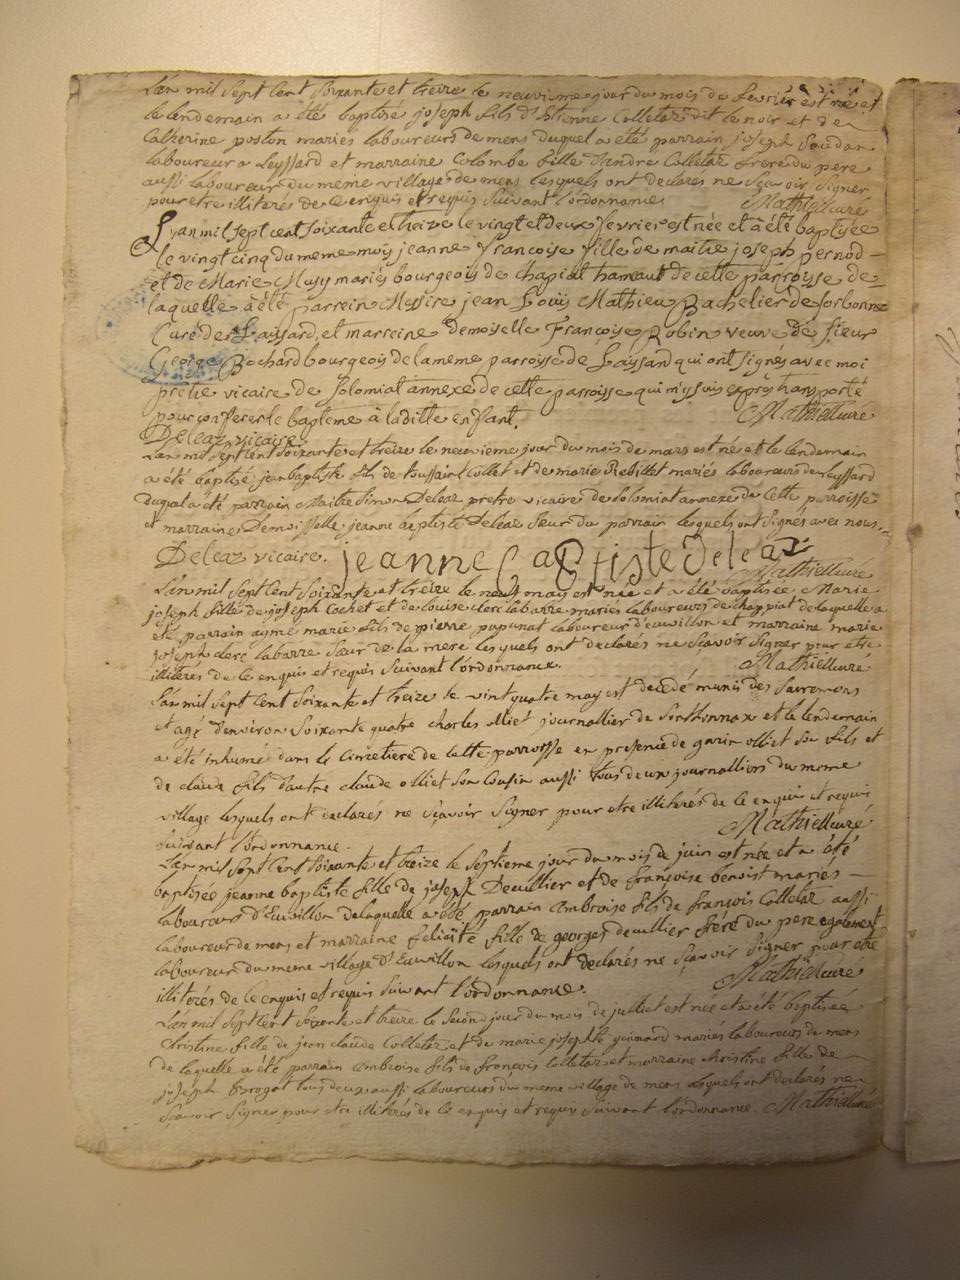 L'an mil sept cent soixante et treize le neuvieme jour du mois de fevrier est né et
le lendemain a été baptisé joseph fils d'Etienne Colletaz dit le noir et de
Catherine poston mariés laboureurs de mens duquel a été parrain joseph Soudan
laboureur a Leyssard et marraine Colombe fille d'andré Colletaz frere du pere
aussi laboureur du meme village de mens lesquels ont declarés ne sçavoir signer
pour etre illiterés de ce enquis et requis suivant l'ordonnance. Mathieu curé
L'an mil sept cent soixante et treize le vingt et deux fevrier est née et a été baptisée
le vingt cinq du meme mois jeanne françoise fille de maitre joseph pernod
et de Marie Musy mariés bourgeois de chapiat hameaut de cette parroisse de
laquelle a été parrein Messire jean Loüis Mathieu Bachelier de sorbonne
Curé de Laissard, et marreine demoiselle Françoise Robin veuve de sieur
George Bochard bourgeois de la meme parroisse de Layssard qui ont signés avec moi
prêtre vicaire de solomiat annexe de cette parroisse qui m'y suis exprès transporté
pour conferer le bapteme à la ditte enfant. Mathieu curé
Deleaz vicaire
L'an mil sept cent soixante et treize le neuvieme jour du mois de mars est né et le lendemain
a été baptisé jean baptiste fils de toussaint Collet et de marie Rebillet mariés laboureurs de Leyssard
duquel a été parrain Maitre Simon Deleaz pretre vicaire de solomiat annexe de cette parroisse
et marraine Demoiselle jeanne baptiste Deleaz sœur du parrain lesquels ont signés avec nous.
Deleaz vicaire. jeanne Baptiste deleaz
Mathieu curé
L'an mil sept cent soixante et treize le neuf may est née et a été baptisée Marie
joseph fille de joseph Cochet et de Louise clerc labarre mariés laboureurs de chappiat de laquelle a
été parrain aymé marie fils de pierre pupunat laboureur d'euvillon et marraine marie
joseph clerc labarre sœur de la mere lesquels ont declarés ne sçavoir signer pour etre
illiterés de ce enquis et requis suivant l'ordonnance. Mathieu curé
L'an mil sept cent soixante et treize le vint quatre may est decedé munis des sacremens
et agé d'environ soixante quatre charles olliet journallier de Sonthonnax et le lendemain
a été inhumé dans le cimetiere de cette parroisse en presence de olliet son fils et
de claude fils d'autre claude olliet son cousin aussi tous deux journalliers du meme
village lesquels ont declarés ne sçavoir signer pour etre illiterés de ce enquis et requis
suivant l'ordonnance. Mathieu curé
L'an mil sept cent soixante et treize le septieme jour du mois de juin est née et a été
baptisée jeanne baptiste fille de joseph Decullier et de françoise benoist mariés
laboureurs d'Euvillon de laquelle a été parrain ambroise fils de françois Colletaz aussi
laboureur de mens et marraine felicité fille de george decullier frére du pere egalement
laboureur du meme village d'Euvillon lesquels ont declarés ne sçavoir signer pour etre
illiterés de ce enquis et requis suivant l'ordonnance. Mathieu curé
L'an mil sept cent soixante et treize le second jour du mois de juillet est née et a été baptisée
christine fille de jean claude Colletaz et de marie josephte guinard mariés laboureurs de mens
de laquelle a été parrain ambroise fils de françois Colletaz et marraine christine fille de
joseph Brogat tous deux aussi laboureurs du meme village de mens lesquels ont declarés ne
sçavoir signer pour etre illiterés de ce enquis et requis suivant l'ordonnance. Mathieu curé